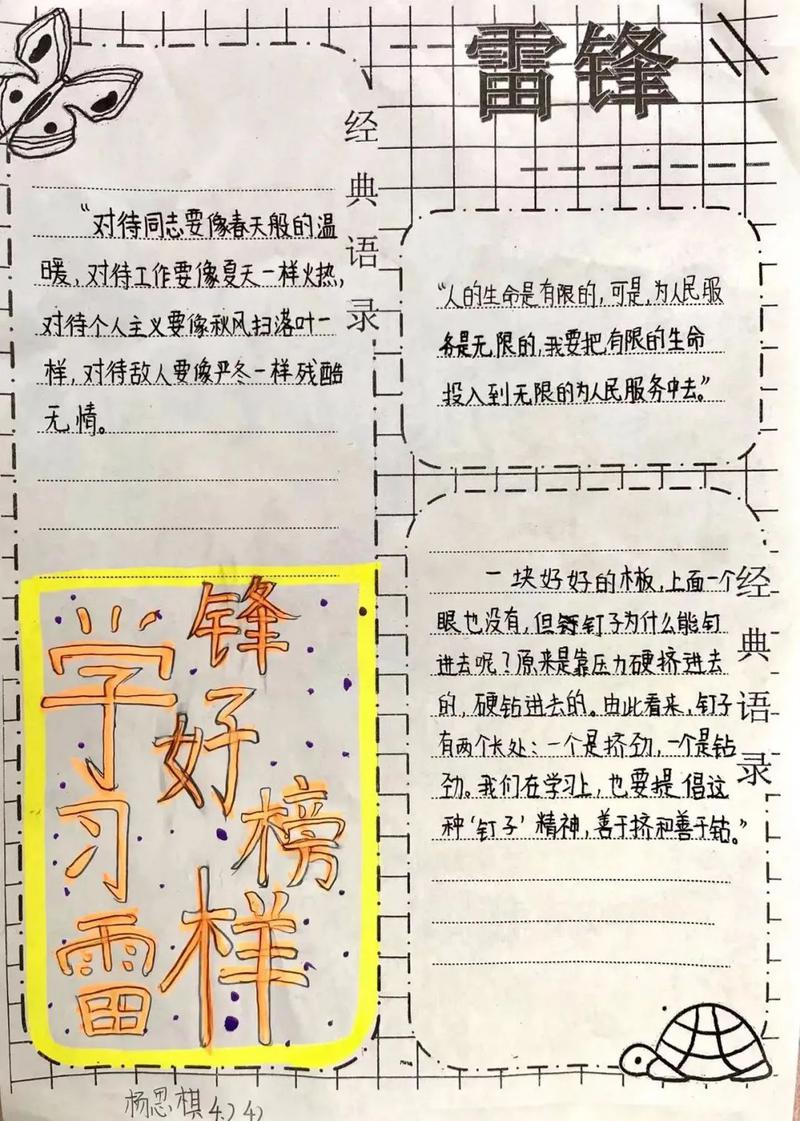 雷锋
经典语录
“对待同志要像春天般的温
暖，对待工作要像夏天一样火热，
对待个人主义要像秋风扫落叶一
样，对待敌人要像严冬一样残酷
无情。
“人的生命是有限的，可是，为人民服
务是无限的，我要把有限的生命
投入到无限的为人民服务中去。”
经典语录
一块好好的木板，上面一个
眼也没有，但钉子为什么能钉
进去呢？原来是靠压力硬挤进去
的，硬钻进去的。由此看来，钉子
有两个长处：一个是挤劲，一个是钻
劲。我们在学习上，也要提倡这
种‘钉子’精神，善于挤和善于钻。”
学习雷
锋好榜样
杨思棋 4.）4）